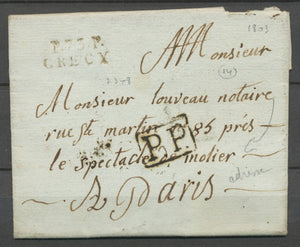 P.75.P.
CRECY
1803
Monsieur
14
Monsieur louveau notaire
rue St martin n 85 prés
le spectacle de molier
P.P.
A Paris